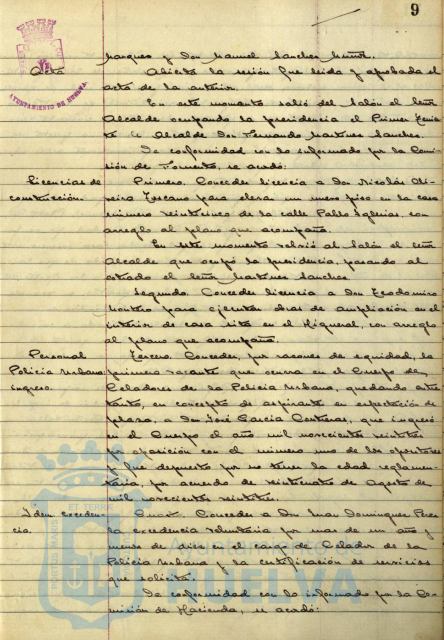 9
AYUNTAMIENTO DE HUELVA
Marquez y Don Manuel Sanchez Muñoz.
Acta Abierta la sesión fue leida y aprobada el
acta de la anterior.
En este momento salió del Salón el Señor
Alcalde ocupando la presidencia el Primer Tenien
te de Alcalde Don Fernando Martinez Sanchez.
De conformidad con lo informado por la Comi
sión de Fomento, se acordó:
Licencias de Primero. Conceder licencia a Don Nicolás
construcción. Toscano para elevar un nuevo piso en la casa
número veinticinco de la calle Pablo Iglesias, con
arreglo al plano que acompaña.
En este momento volvió al Salón el Señor
Alcalde que ocupó la presidencia, pasando al
estrado el Señor Martinez Sanchez
Segundo. Conceder licencia a Don Teodomiro
Montero para ejecutar obras de ampliación en el
interior de casa sita en el Higueral, con arreglo
al plano que acompaña.
Personal Tercero. Conceder, por razones de equidad, la
Policia Urbana primera vacante que ocurra en el Cuerpo de
ingreso. Celadores de la Policia Urbana, quedando entre
tanto, en concepto de aspirante en expectación de
plaza, a Don José Garcia Contreras, que ingresó
en el Cuerpo el año mil novecientos veintitres
por oposición con el número uno de los opositores
y fue depuesto por no tener la edad reglamen
taria, por acuerdo de veinticuatro de Agosto de
mil novecientos veintitres.
Idem exceden Conceder a Don Juan Dominguez Pere
cia. la excedencia voluntaria por mas de un año y
menos de diez en el cargo de Celador de la
Policia Urbana y la certificación de servicios
que solicita.
De conformidad con lo informado por la Co
misión de Hacienda, se acordó:
Ayuntamiento de
HUELVA